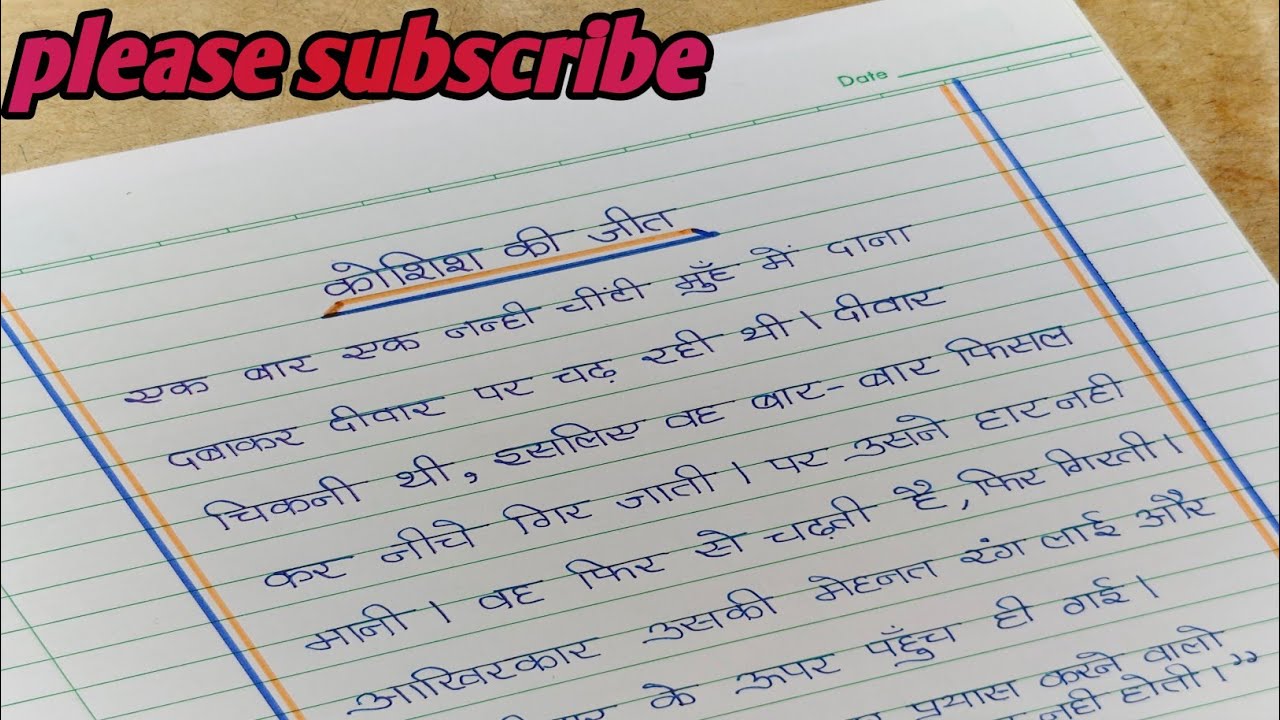 please subscribe
Date
कोशिश की जीत
एक बार एक नन्ही चींटी मुँह में दाना
दबाकर दीवार पर चढ़ रही थी। दीवार
चिकनी थी, इसलिए वह बार-बार फिसल
कर नीचे गिर जाती। पर उसने हार नही
मानी। वह फिर से चढ़ती है, फिर गिरती।
आखिरकार उसकी मेहनत रंग लाई और
के ऊपर पहुँच ही गई।
प्रयास करने वालो
नही होती।”